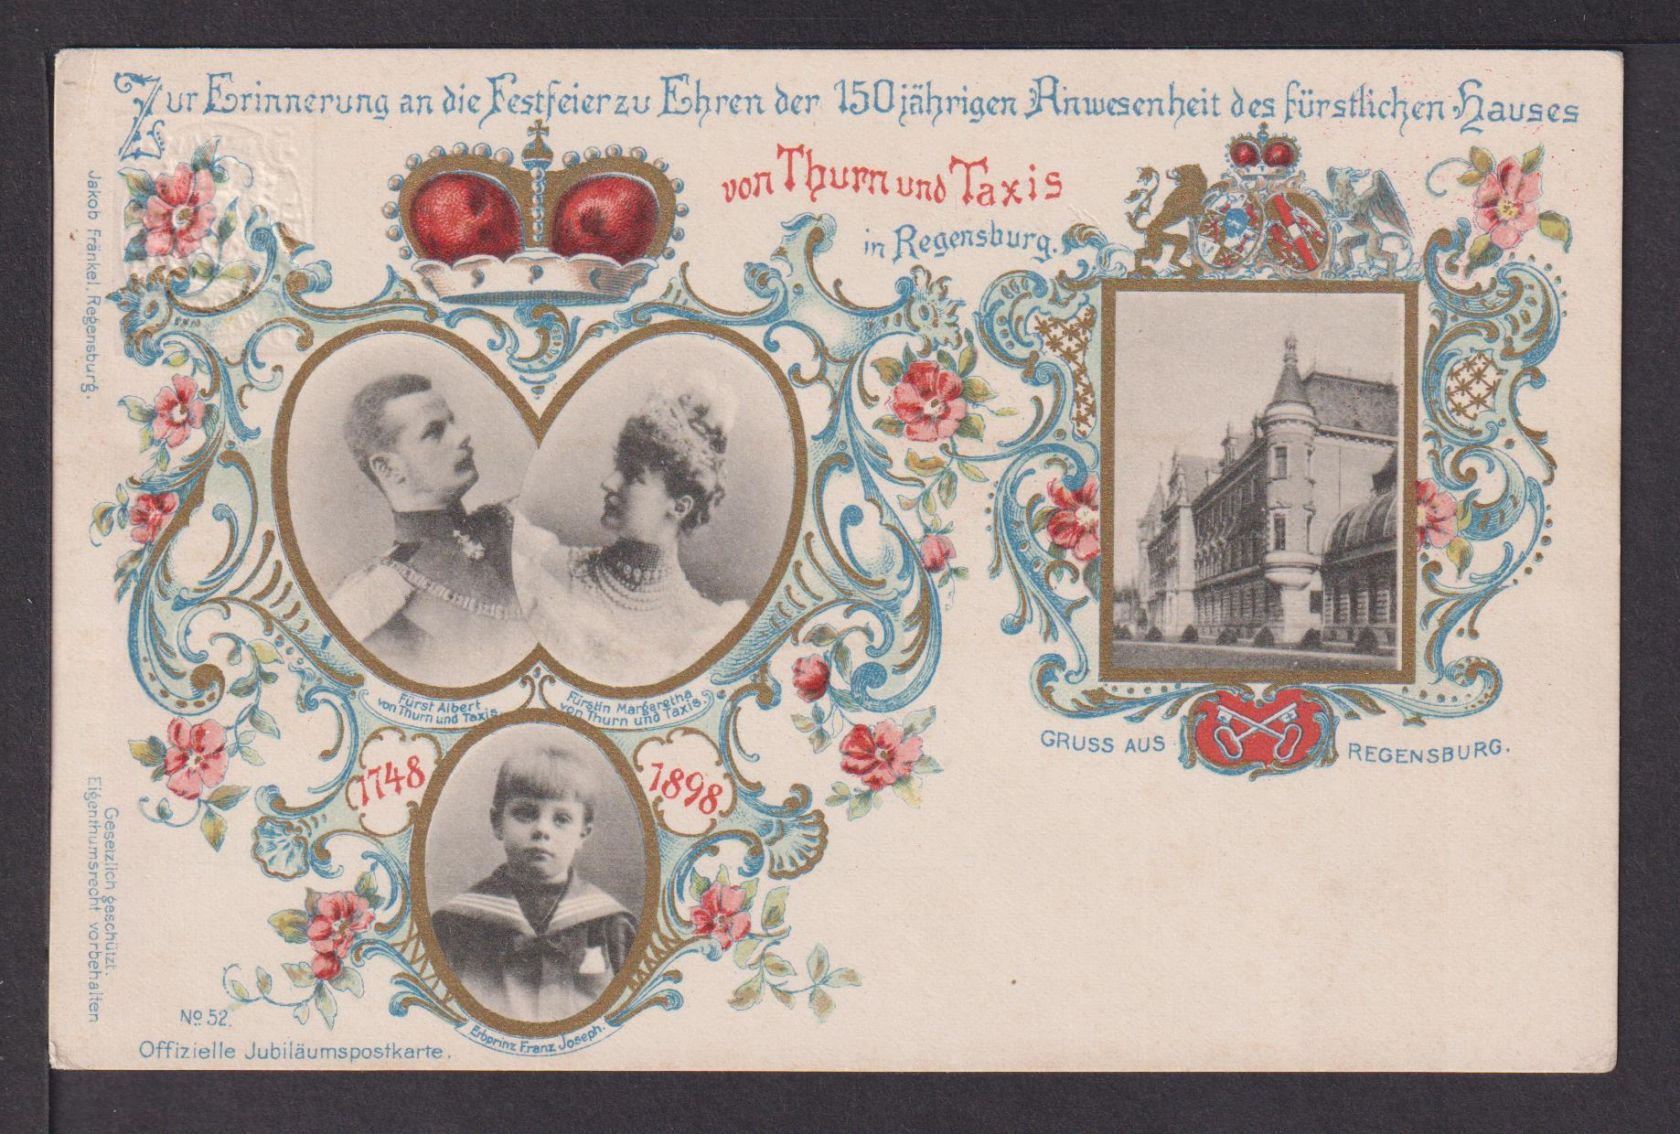 Zur Erinnerung an die Festfeier zu Ehren der 150jährigen Anwesenheit des fürstlichen Hauses
von Thurn und Taxis
in Regensburg.
Jakob Fränkel, Regensburg.
Fürst Albert
von Thurn und Taxis
Fürstin Margaretha
von Thurn und Taxis.
1748
1898
GRUSS AUS REGENSBURG.
Erbprinz Franz Joseph.
Gesetzlich geschützt.
Eigenthumsrecht vorbehalten
No. 52.
Offizielle Jubiläumspostkarte.